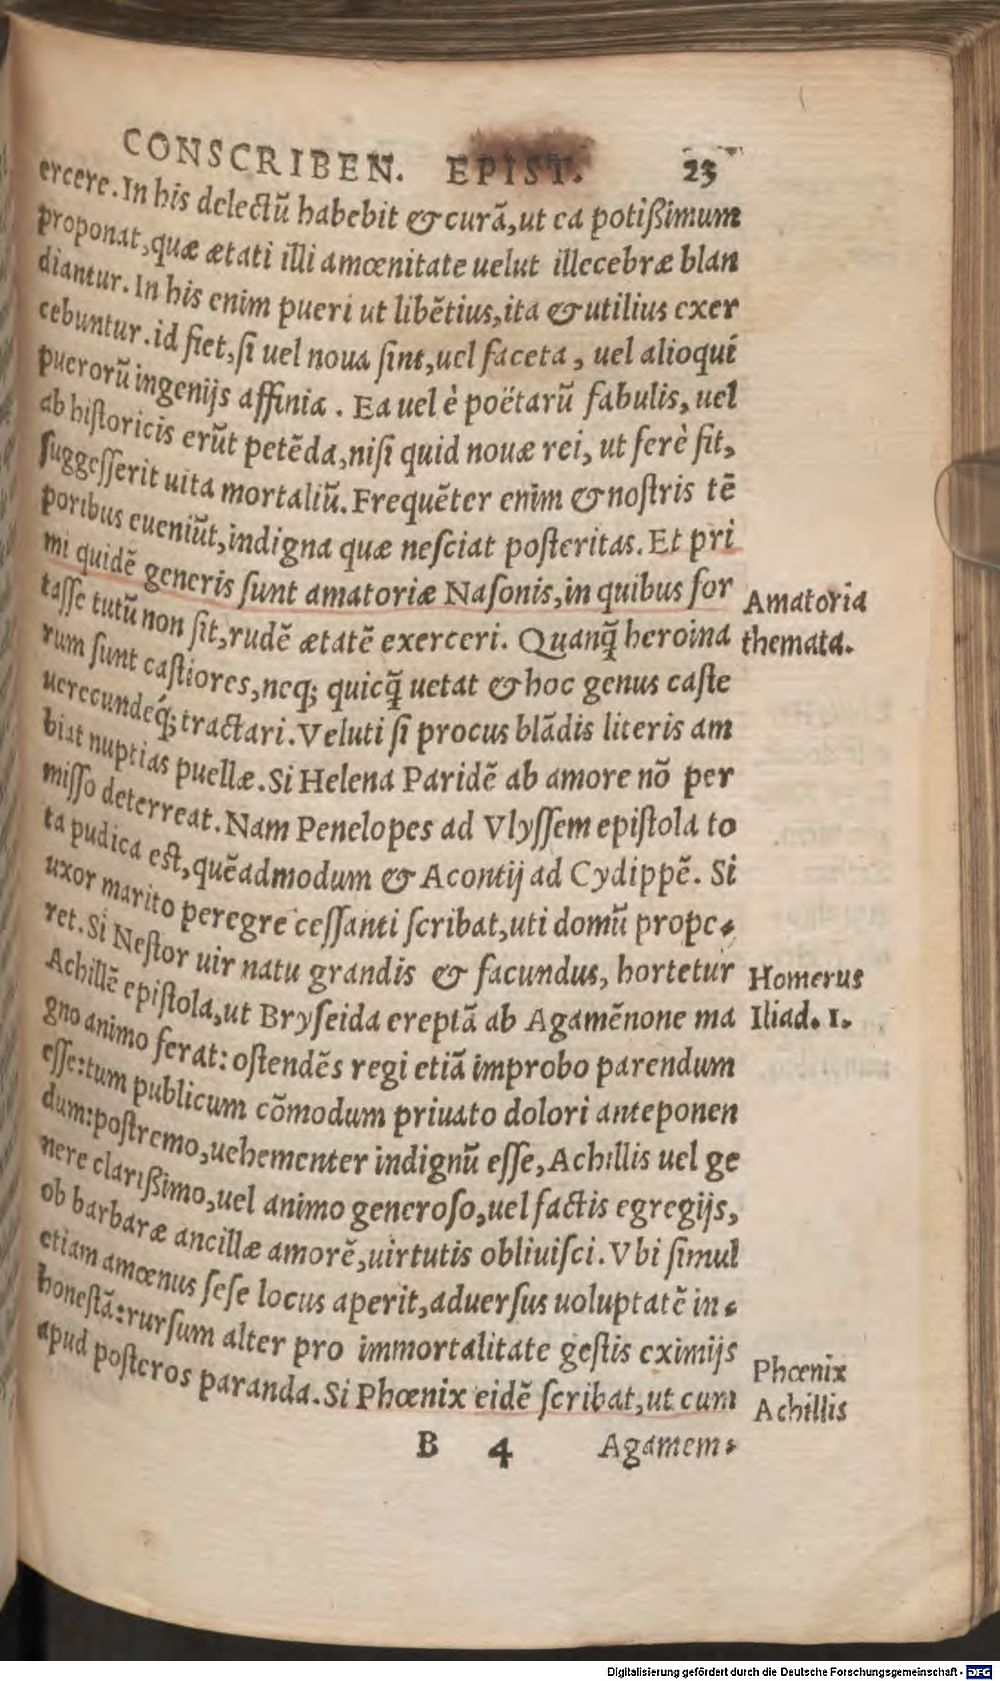 CONSCRIBEN. EPIST. 23
ercere. In his delectū habebit & curā, ut ea potißimum
proponat, quæ ætati illi amœnitate uelut illecebræ blan
diantur. In his enim pueri ut libētius, ita & utilius exer
cebuntur. id fiet, ſi uel noua ſint, uel faceta, uel alioqui
puerorū ingenijs affinia. Ea uel è poëtarū fabulis, uel
ab hiſtoricis erūt petēda, niſi quid nouæ rei, ut ferè fit,
ſuggeſſerit uita mortaliū. Frequēter enim & noſtris tē
poribus eueniūt, indigna quæ neſciat poſteritas. Et pri
mi quidē generis ſunt amatoriæ Naſonis, in quibus for
Amatoria
taſſe tutū non ſit, rudē ætatē exerceri. Quanq̃ heroina
themata.
rum ſunt caſtiores, neq; quicq̃ uetat & hoc genus caſte
uerecundéq; tractari. Veluti ſi procus blādis literis am
biat nuptias puellæ. Si Helena Paridē ab amore nō per
miſſo deterreat. Nam Penelopes ad Vlyſſem epiſtola to
ta pudica eſt, quēadmodum & Acontij ad Cydippē. Si
uxor marito peregre ceſſanti ſcribat, uti domū prope-
ret. Si Neſtor uir natu grandis & facundus, hortetur
Homerus
Achillē epiſtola, ut Bryſeida ereptā ab Agamēnone ma
Iliad. 1.
gno animo ferat: oſtendēs regi etiā improbo parendum
eſſe: tum publicum cōmodum priuato dolori anteponen
dum: poſtremo, uehementer indignū eſſe, Achillis uel ge
nere clarißimo, uel animo generoſo, uel factis egregijs,
ob barbaræ ancillæ amorē, uirtutis obliuiſci. Vbi ſimul
etiam amœnus ſeſe locus aperit, aduerſus uoluptatē in-
honeſtā: rurſum alter pro immortalitate geſtis eximijs
Phœnix
apud poſteros paranda. Si Phœnix eidē ſcribat, ut cum
Achillis
B 4 Agamem-
Digitalisierung gefördert durch die Deutsche Forschungsgemeinschaft - DFG